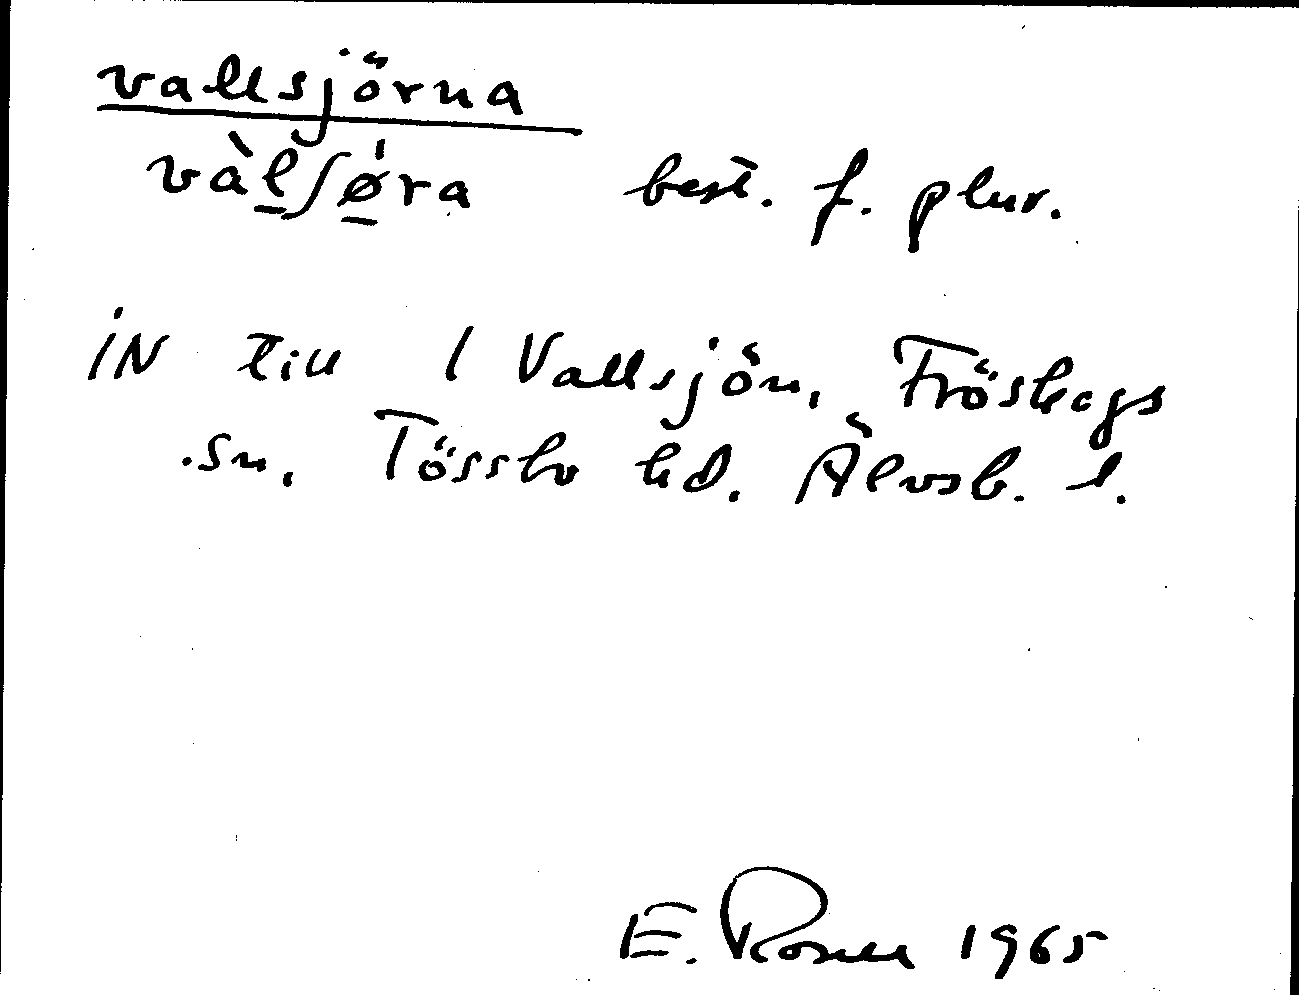 vallsjörna
vàl̠ʃǿ̠ra best. f. plur.
IN till 1 Vallsjön, Fröskogs
sn, Tössbo hd. Älvsb. l.
E. Rosell 1965